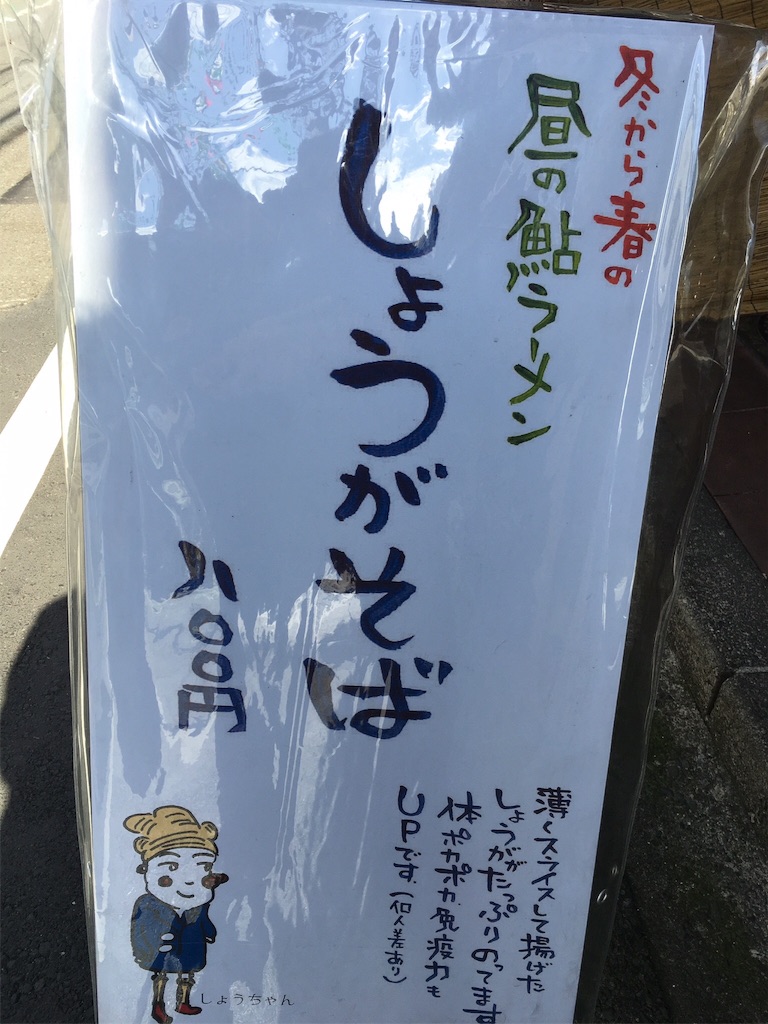 冬から春の
昼の鮎ラーメン
しょうがそば
八〇〇円
薄くスライスして揚げた
しょうががたっぷりのってます
体ポカポカ免疫力も
UPです。(個人差あり)
しょうちゃん